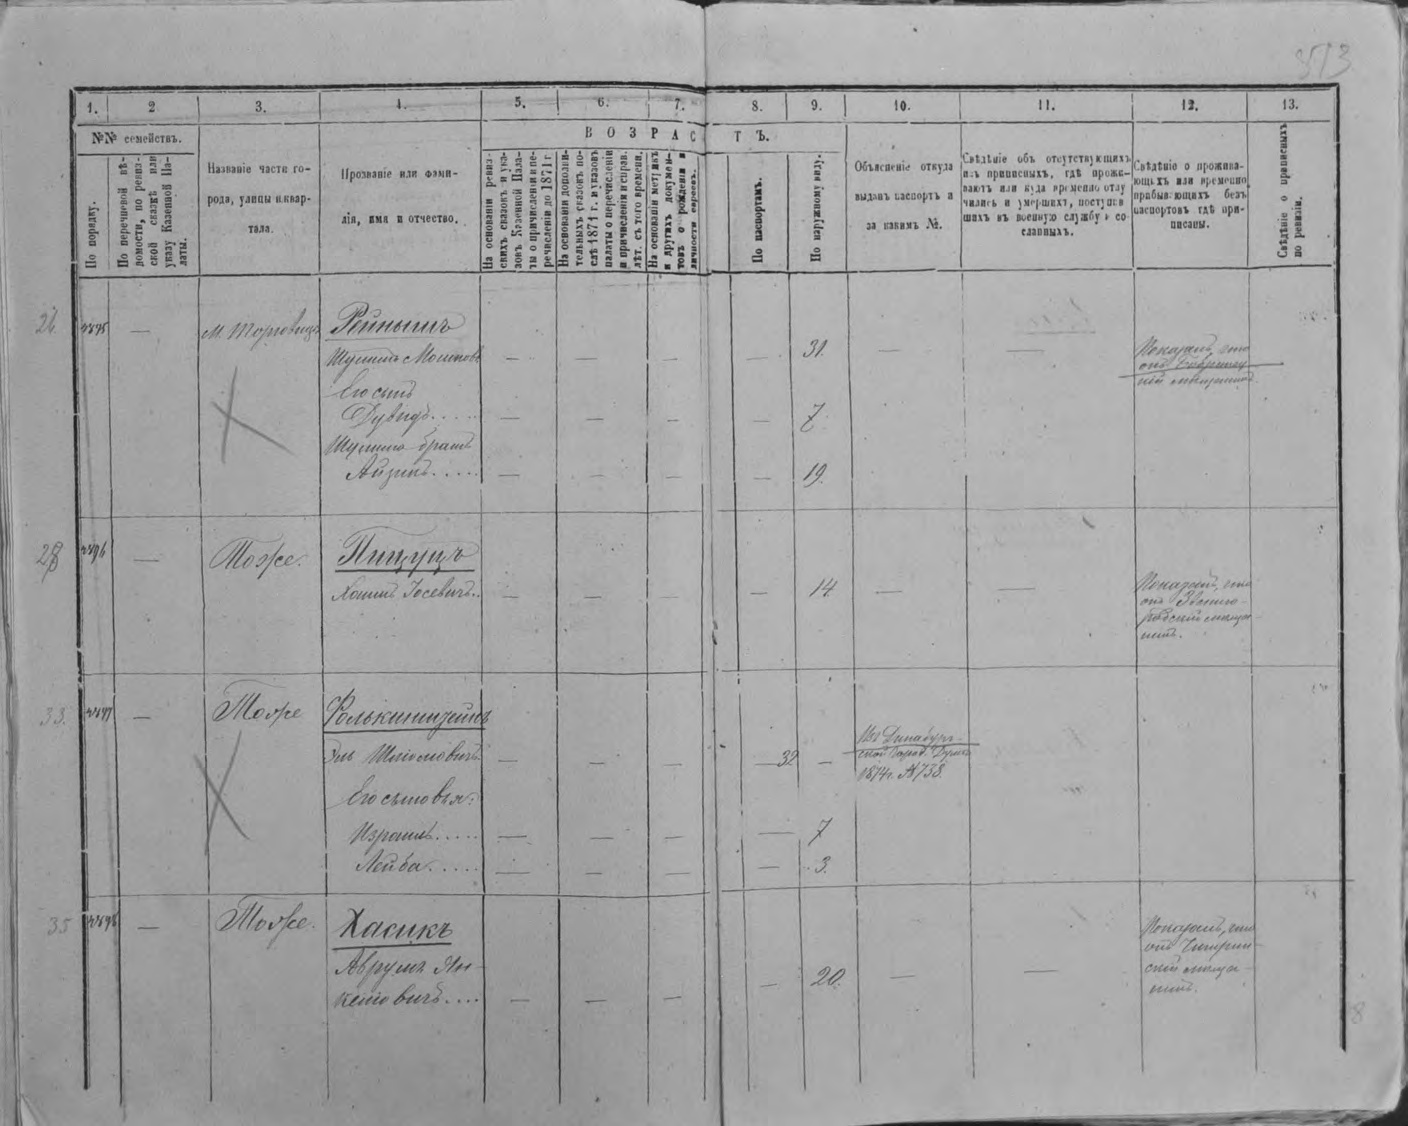 1.
2
3.
4.
5.
6.
7.
8.
9.
10.
11.
12.
13.
№№ семействъ.
По порядку.
По перечневой вѣ-
домости, по ревиз-
ской сказкѣ или
указу Казенной Па-
латы.
Названіе части го-
рода, улицы и квар-
тала.
Прозваніе или фами-
лія, имя и отчество.
ВОЗРАСТЪ.
На основаніи ревиз-
скихъ сказокъ и ука-
зовъ Казенной Пала-
ты о причисленіи и пе-
речисленіи до 1871 г.
На основаніи дополни-
тельныхъ сказокъ по-
слѣ 1871 г. и указовъ
палаты о перечисленіи
и причисленіи и справ.
лѣт. съ того времени.
На основаніи метрикъ
и другихъ докумен-
товъ о рожденіи и
личности евреевъ.
По паспортамъ.
По наружному виду.
Объясненіе откуда
выданъ паспортъ и
за какимъ №.
Свѣдѣніе объ отсутствующихъ
изъ приписныхъ, гдѣ прожи-
ваютъ или куда временно отлу
чились и умершихъ, поступив
шихъ въ военную службу и со-
сланныхъ.
Свѣдѣніе о прожива-
ющихъ или временно
прибывающихъ безъ
паспортовъ гдѣ при-
писаны.
Свѣдѣніе о приписныхъ
по ревизіи.
26
—
м. Торговица
Рейнышъ
— — — — 31. — —
Показалъ, что
онъ
мѣщанинъ
Его сынъ
Дувидъ..... — — — — 7
братъ
Айзикъ..... — — — — 19.
28
—
Тоже.
Пицуцъ
Хаимъ Іосевичъ.. — — — — 14. — —
Показалъ, что
онъ Звениго-
родскій мѣща-
нинъ.
33.
—
Тоже
Эль Шліомовичъ — — — 32 —
Изъ Динабург-
ской Город. Думы
1874 г. № 738.
Его сыновья:
Израиль..... — — — — 7
Лейба..... — — — — 3.
35
—
Тоже.
Хасикъ
Аврумъ
— — — — 20. — —
Показалъ, что
онъ Чигирин-
скій мѣща-
нинъ.